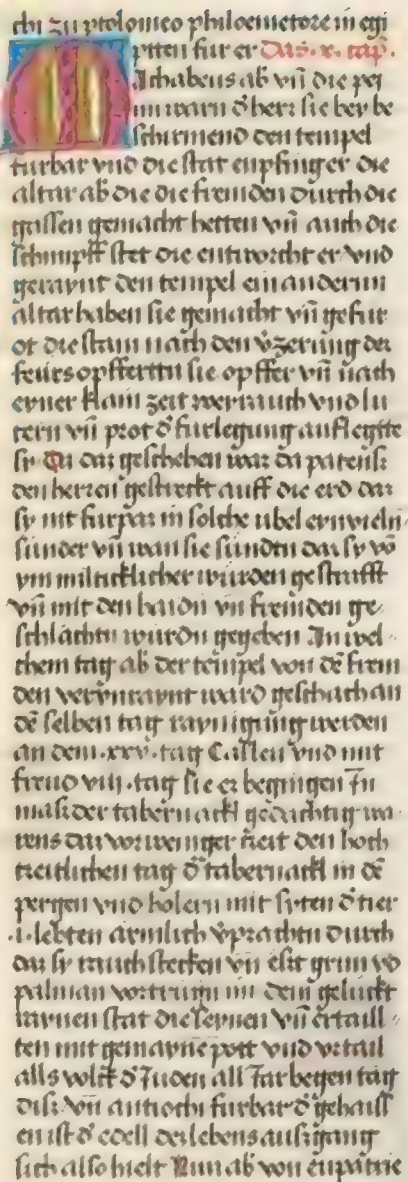 chi zu ptolomeo philometore in egi
ptten fur er Das .x. cap.
Machabeus ab vñ die pei
im warn d̄ herr sie bey be
schirmend den tempel
furbar vnd die stat enpfing er die
altar ab die die fremden durch die
gassen gemacht hetten vñ auch die
schimpff stet die entworcht er vnd
geraynt den tempel ein andernn
altar haben sie gemacht vñ gefur
ot die stain nach den v̄zerung der
feurs opfferttn sie opffer vñ nach
eyner klain zeit weyrauch vnd lu
cern vñ prot d̄ furlegung auflegtte
sy Da daz geschehen waz da patens
den herren gestreckt auff die erd daz
sy nit furpaz in solche ubel eynvieln
sunder vñ wan sie sundtn daz sy vō
ym milticklicher wurden gestrafft
vñ mit den haidn vñ fremden ge
schlachtn wurdn gegeben In wel
chem tag ab der tempel von dē frem
den verunraynt ward geschach an
dē selben tag raynigung werden
an dem .xxv. tag Casleu vnd mit
freud viii. tag sie er begingen In
mass der tabernackl gedachtig wa
rens daz vor weniger zeit den hoch
zeitlichen tag d̄ tabernackl in dē
pergen vnd holern mit syten d̄ tier
.i. lebten armlich v̄prachtn durch
daz sy rauch stecken vñ esst grun vō
palman vortrugn im dem geluckt
raynen stat die seynen vñ ertaill
ten mit gemayne pott vnd vrtail
alls volck d̄ Juden all Jar begen tag
diss vñ antiochi furbar d̄ gehaiss
en ist d̄ edell des lebens aussgang
sich also hielt Nun ab von eupatrie